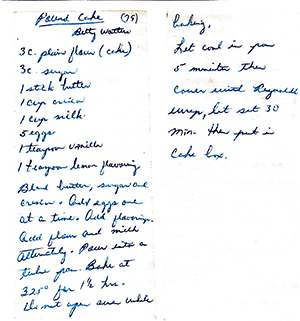 Pound Cake (75)
Betty Watters
3 c. plain flour (cake)
3 c. sugar
1 stick butter
1 cup crisco
1 cup milk
5 eggs
1 teaspoon vanilla
1 teaspoon lemon flavoring
Blend butter, sugar and
crisco. Add eggs one
at a time. Add flavoring.
Add flour and milk
alternately. Pour into a
tube pan. Bake at
325° for 1½ hrs.
Do not open oven while
baking.
Let cool in pan
5 minutes then
cover with Reynolds
wrap, let set 30
min. then put in
cake box.